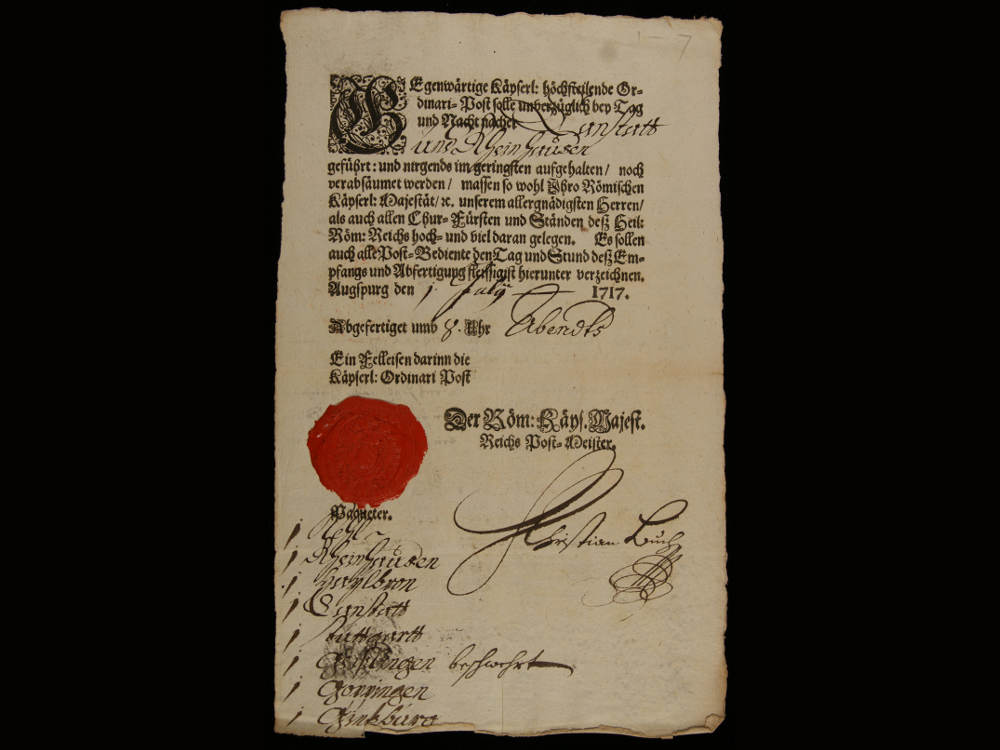 1–7
GEgenwärtige Käyserl: höchsteilende Or-
dinari-Post solle unverzüglich bey Tag
und Nacht nacher Canstatt
und Rheinhausen
geführt: und nirgends im geringsten aufgehalten/ noch
verabsäumet werden/ massen so wohl Ihro Römischen
Käyserl: Majestät/ ꝛc. unserem allergnädigsten Herren/
als auch allen Chur-Fürsten und Ständen deß Heil:
Röm: Reichs hoch- und viel daran gelegen. Es sollen
auch alle Post-Bediente den Tag und Stund deß Em-
pfangs und Abfertigung fleissigist hierunter verzeichnen.
Augspurg den 1 July 1717.
Abgefertiget umb 8. Uhr Abendts
Ein Felleisen darinn die
Käyserl: Ordinari Post
Der Röm: Käys. Majest.
Reichs Post-Meister.
Christian Buch
Paqueter.
1 Kehl
1 Rheinhausen
1 Heylbron
1 Canstatt
1 Stuttgartt
1 Geißlingen beschwehrt
1 Göppingen
1 Günkburg